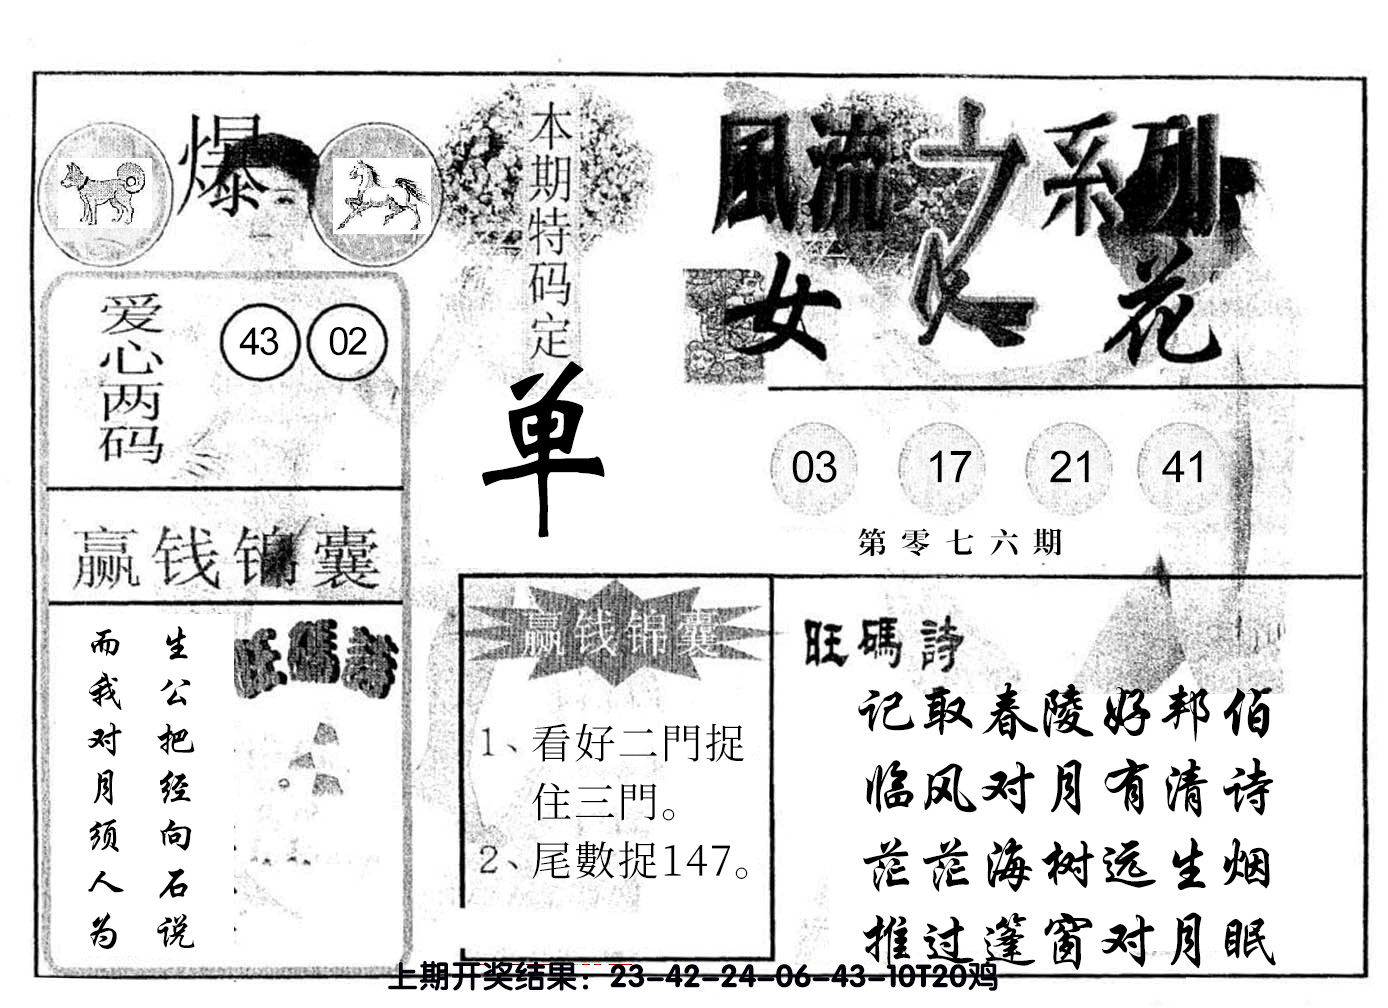 爆
本期特码定
单
風流之系列
女人花
爱心两码
43 02
03 17 21 41
第零七六期
赢钱锦囊
旺碼詩
生公把经向石说
而我对月须人为
赢钱锦囊
1、看好二門捉
住三門。
2、尾數捉147。
旺碼詩
记取春陵好邦伯
临风对月有清诗
茫茫海树远生烟
推过篷窗对月眠
上期开奖结果：23-42-24-06-43-10T20鸡